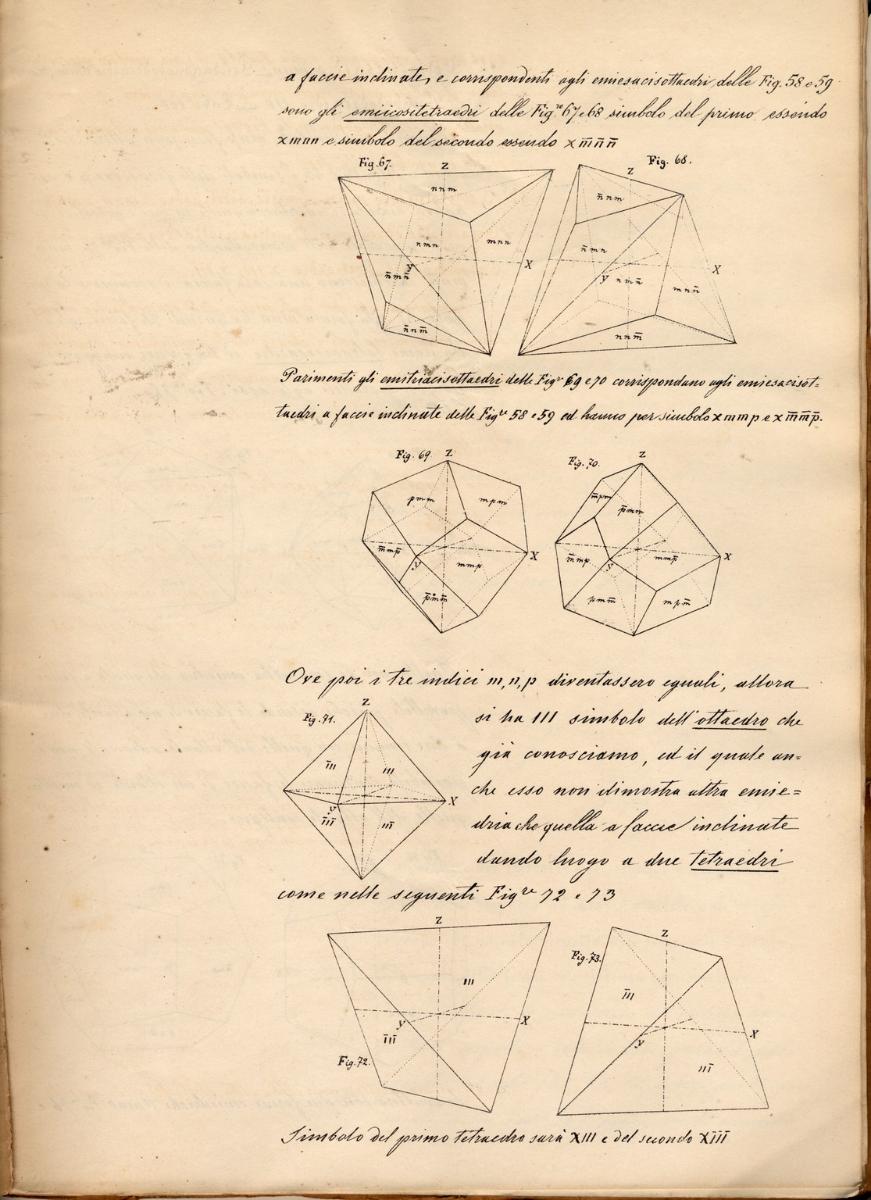 a faccie inclinate, e corrispondenti agli emiesacisottaedri delle Fig. 58 e 59
sono gli emiicositetraedri delle Fig.re 67 e 68 simbolo del primo essendo
xmnn e simbolo del secondo essendo x m̅n̅n̅
Fig. 67.
Z
Z
Fig. 68.
nnm
n̅nm
nmn
mnn
n̅mn
X
X
y
y
n̅mn̅
mnn̅
n̅nm̅
nnm̅
Parimenti gli emitriacisottaedri delle Fig.re 69 e 70 corrispondano agli emiesacisot=
taedri a faccie inclinate delle Fig.re 58 e 59 ed hanno per simbolo x mmp e x m̅m̅p̅.
Fig. 69.
Z
Fig. 70.
Z
pmm
mpm
m̅pm
p̅mm
m̅mp̅
mmp
X
m̅mp
mmp̅
X
y
y
p̅mm̅
pmm̅
mpm̅
Ove poi i tre indici m, n, p diventassero eguali, allora
Fig. 71.
Z
si ha 111 simbolo dell'ottaedro che
già conosciamo, ed il quale an=
che esso non dimostra altra emie=
dria che quella a faccie inclinate
dando luogo a due tetraedri
1̅11
111
X
y
1̅11̅
111̅
come nelle seguenti Fig.re 72 e 73
Z
Z
Fig. 73.
111
1̅11
y
X
y
X
1̅11̅
111̅
Fig. 72.
Simbolo del primo tetraedro sarà X111 e del secondo X1̅1̅1̅